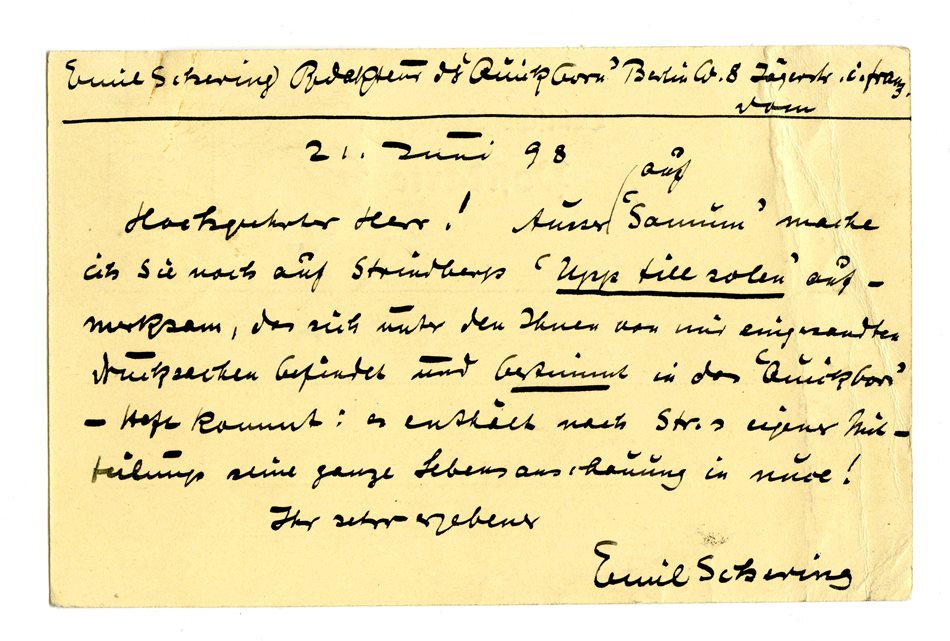 Emil Schering, Redakteur d's "Quickborn" Berlin W. 8 Jägerstr. i. franz.
Dom
21. Juni 98
auf
Hochgeehrter Herr! Ausser "Samum" mache
ich Sie noch auf Strindbergs "Upp till solen" auf-
merksam, das sich unter den Ihnen von mir eingesandten
Drucksachen befindet und bestimmt in das "Quickborn"
- Heft kommt: es enthält nach Str.s eigener Mit-
teilung seine ganze Lebensanschauung in nuce!
Ihr sehr ergebener
Emil Schering